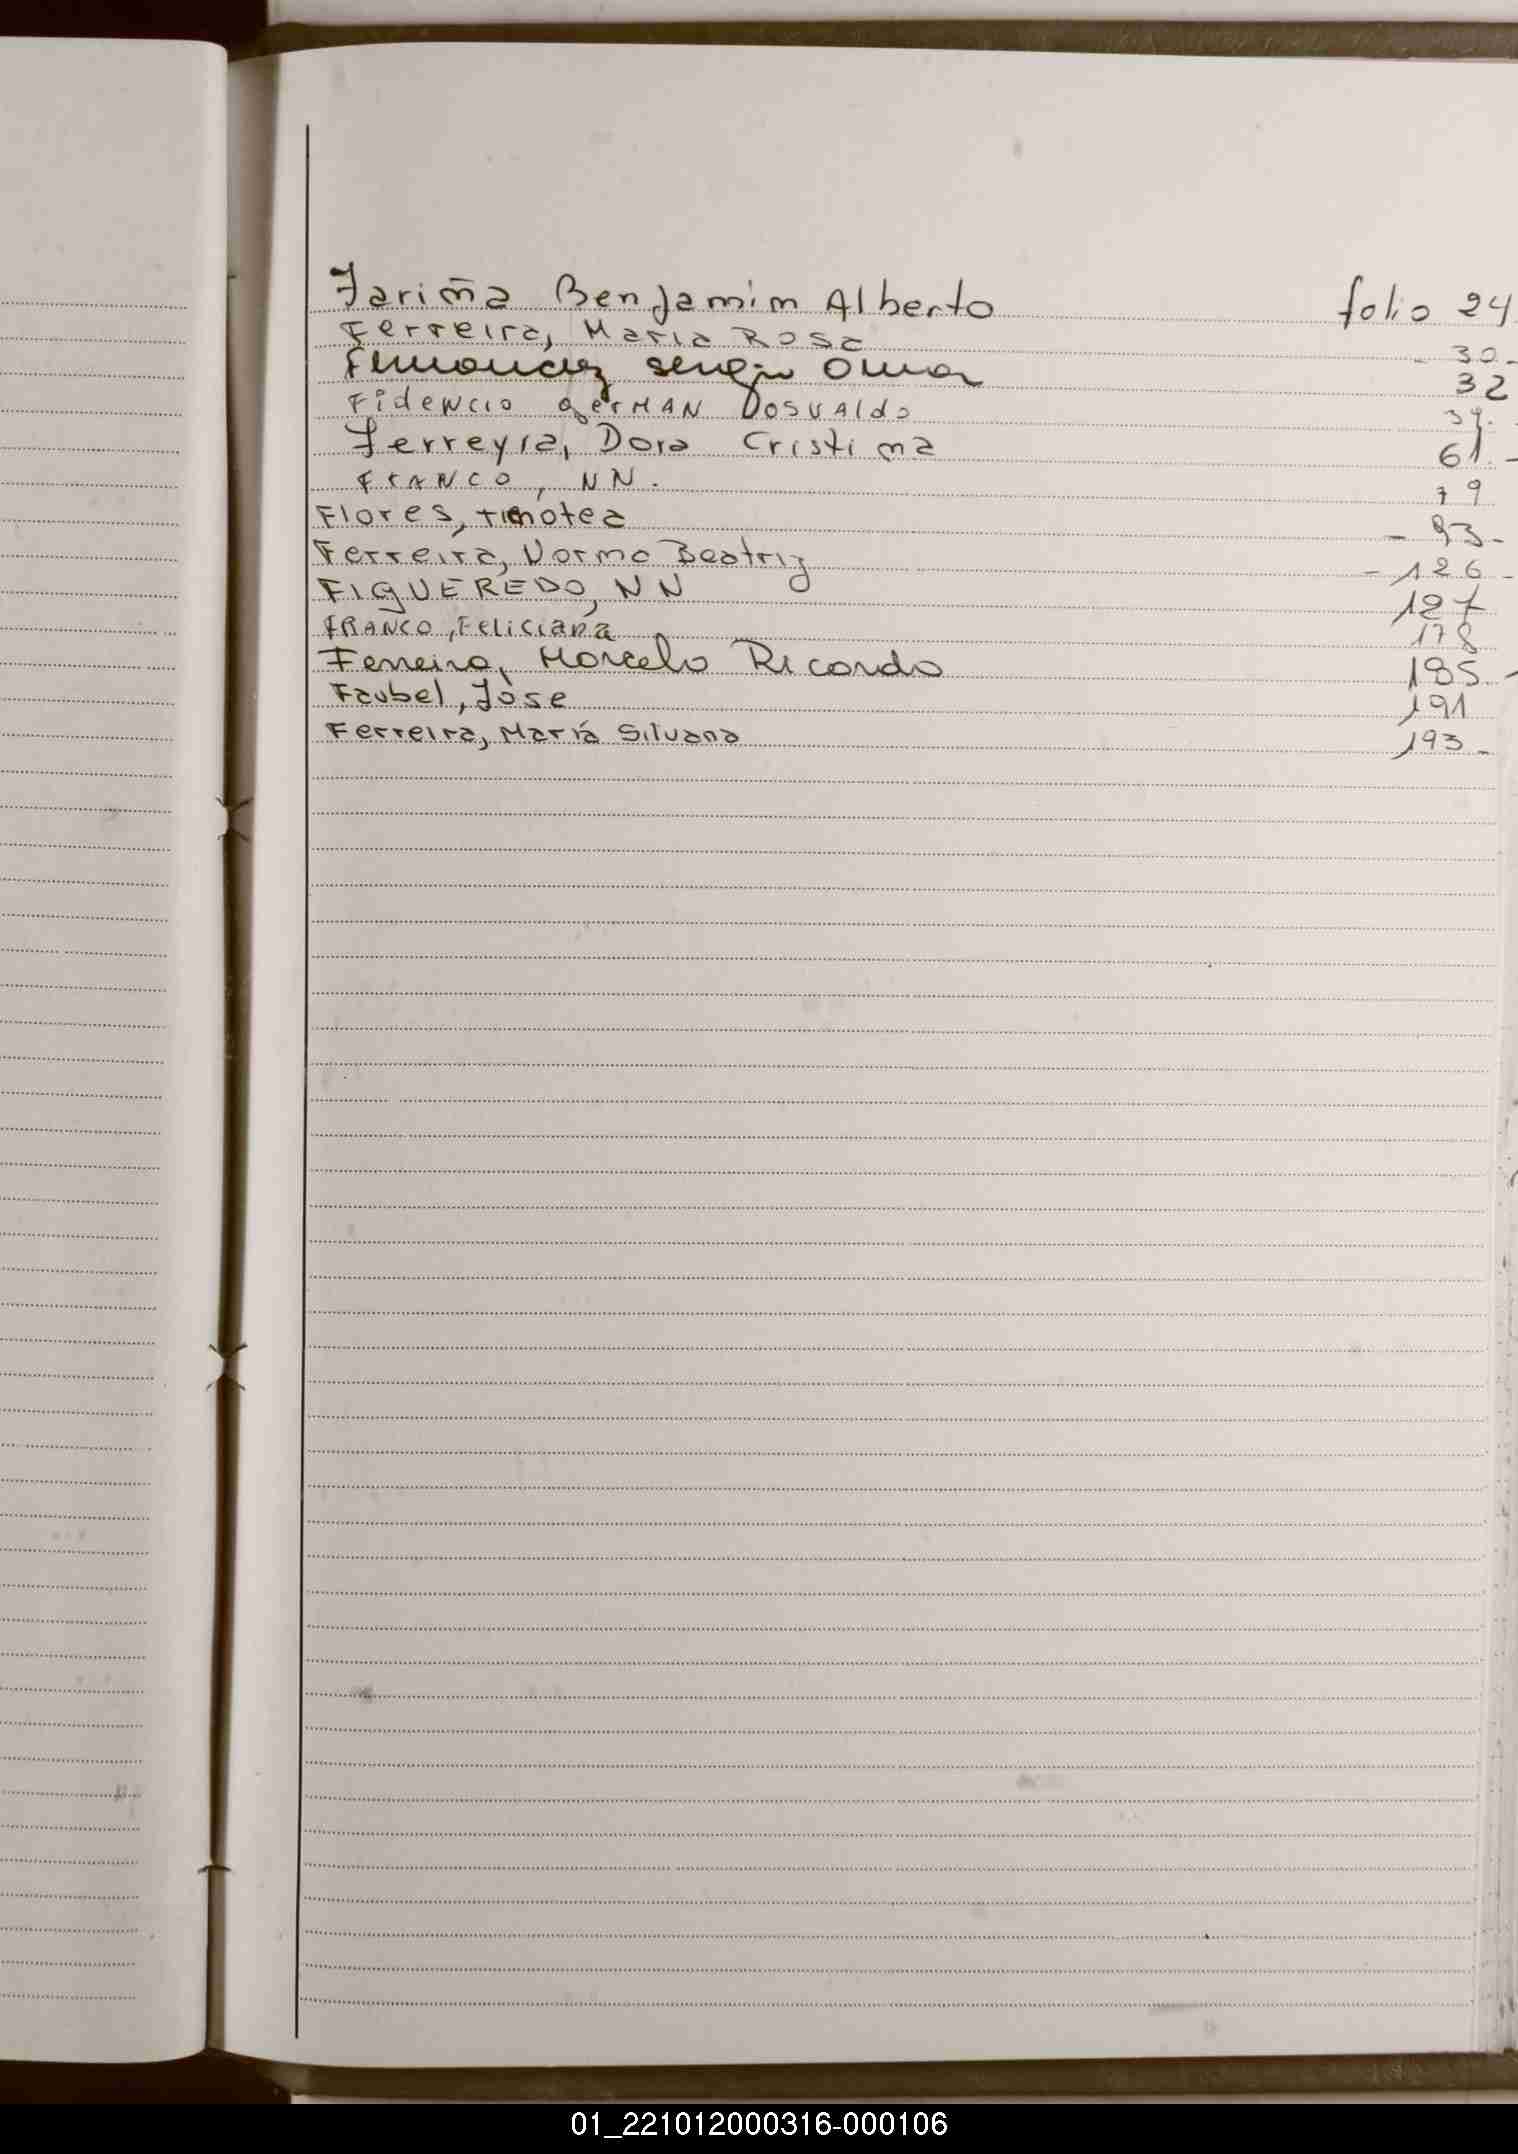 Fariña Benjamim Alberto folio 24
Ferreira, Maria Rosa - 30 -
Fernandez Sergio Omar 32
Fidencio GerMAN DOSVAldo 34.
Ferreyra, Dora Cristima 61 -
FrANCO, NN. 79
Flores, Timotea - 93 -
Ferreira, Norma Beatriz - 126 -
FIGUEREDO, NN 127
FRANCO, Feliciana 178
Ferreira, Marcelo Ricardo 185 -
Faubel, Jóse 191
Ferreira, María Silvana 193 -
01_221012000316-000106